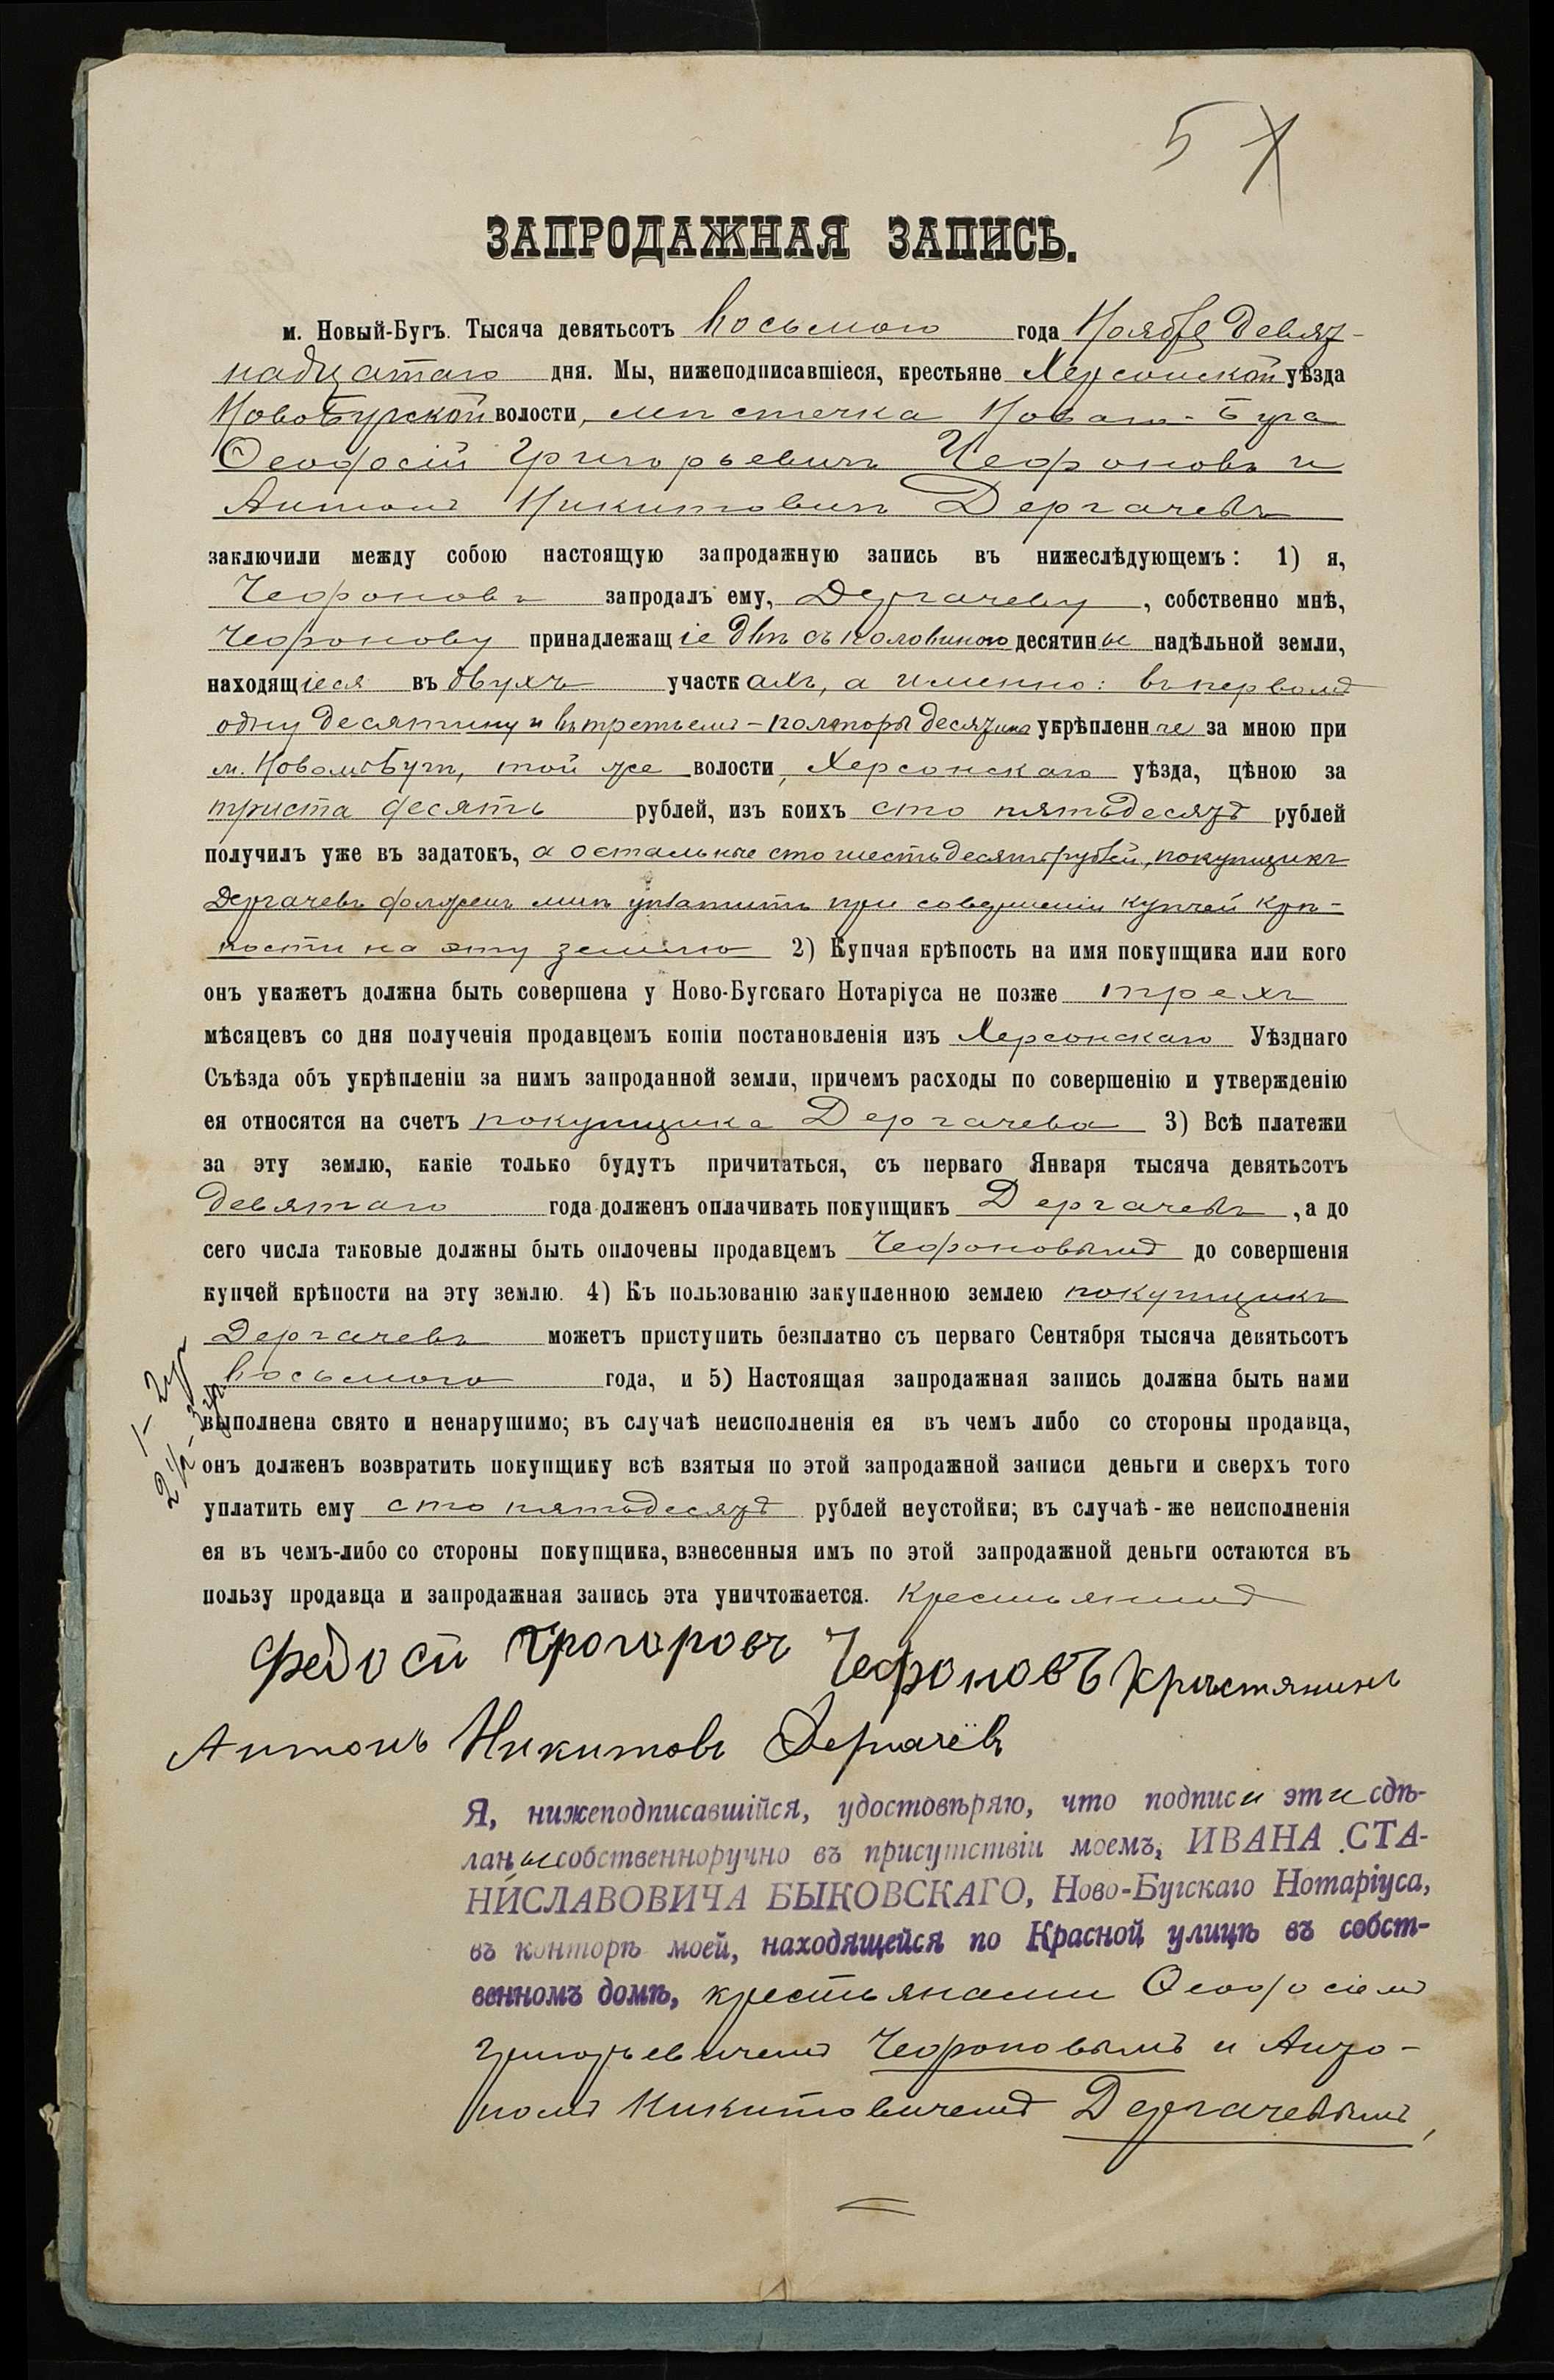 5
ЗАПРОДАЖНАЯ ЗАПИСЬ.
м. Новый-Бугъ. Тысяча девятьсотъ восьмого года Ноября девят-
надцатаго дня. Мы, нижеподписавшіеся, крестьяне Херсонской уѣзда
НовоБугской волости, мѣстечка Новаго-Буга
Ѳеодосій Григорьевичъ Чефоновъ и
Антонъ Никитовичъ Дергачевъ
заключили между собою настоящую запродажную запись въ нижеслѣдующемъ: 1) я,
Чефоновъ запродалъ ему, Дергачеву, собственно мнѣ,
Чефонову принадлежащіе двѣ съ половиною десятины надѣльной земли,
находящіеся въ двухъ участкахъ, а именно: въ первомъ
одну десятину и въ третьемъ – полторы десятины укрѣпленные за мною при
м. Новомъ Бугѣ, той же волости, Херсонскаго уѣзда, цѣною за
триста десять рублей, изъ коихъ сто пятьдесятъ рублей
получилъ уже въ задатокъ, а остальные сто шестьдесятъ рублей, покупщикъ
Дергачевъ долженъ мнѣ уплатить при совершеніи купчей крѣ-
пости на эту землю 2) Купчая крѣпость на имя покупщика или кого
онъ укажетъ должна быть совершена у Ново-Бугскаго Нотаріуса не позже трехъ
мѣсяцевъ со дня полученія продавцемъ копіи постановленія изъ Херсонскаго Уѣзднаго
Съѣзда объ укрѣпленіи за нимъ запроданной земли, причемъ расходы по совершенію и утвержденію
ея относятся на счетъ покупщика Дергачева 3) Всѣ платежи
за эту землю, какіе только будутъ причитаться, съ перваго Января тысяча девятьсотъ
девятаго года должен​ъ оплачивать покупщикъ Дергачевъ, а до
сего числа таковые должны быть оплочены продавцемъ Чефоновымъ до совершенія
купчей крѣпости на эту землю. 4) Къ пользованію закупленною землею покупщикъ
Дергачевъ можетъ приступить безплатно съ перваго Сентября тысяча девятьсотъ
восьмого года, и 5) Настоящая запродажная запись должна быть нами
выполнена свято и ненарушимо; въ случаѣ неисполненія ея въ чемъ либо со стороны продавца,
онъ долженъ возвратить покупщику всѣ взятыя по этой запродажной записи деньги и сверхъ того
уплатить ему сто пятьдесятъ рублей неустойки; въ случаѣ-же неисполненія
ея въ чемъ-либо со стороны покупщика, взнесенныя имъ по этой запродажной деньги остаются въ
пользу продавца и запродажная запись эта уничтожается. Крестьянинъ
Федоси Грогоровъ Чефоновъ крѣстянинъ
Антонъ Никитовъ Дергачёвъ
Я, нижеподписавшійся, удостовѣряю, что подписи эти сдѣ-
ланы собственноручно въ присутствіи моемъ, ИВАНА СТА-
НИСЛАВОВИЧА БЫКОВСКАГО, Ново-Бугскаго Нотаріуса,
въ конторѣ моей, находящейся по Красной улицѣ въ собст-
венномъ домѣ, крестьянами Ѳеодосіемъ
Григорьевичемъ Чефоновымъ и Анто-
номъ Никитовичемъ Дергачевымъ,